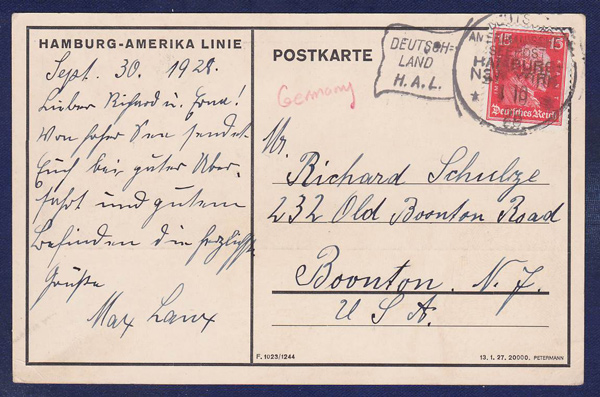 HAMBURG-AMERIKA LINIE
Sept. 30. 1928.
Lieber Richard u. Erna!
Von hoher See sendet
Euch bei guter Über-
fahrt und gutem
Befinden die herzlichst
Grüße
Max Lanx
POSTKARTE
Germany
DEUTSCH=
LAND
H.A.L.
HAMBURG-
NEW YORK
* 1 10 *
28
15 15
Deutsches Reich
Mr.
Richard Schulze
232 Old Boonton Road
Boonton. N. J.
U. S. A.
F. 1023/1244
13. 1. 27. 20000. PETERMANN